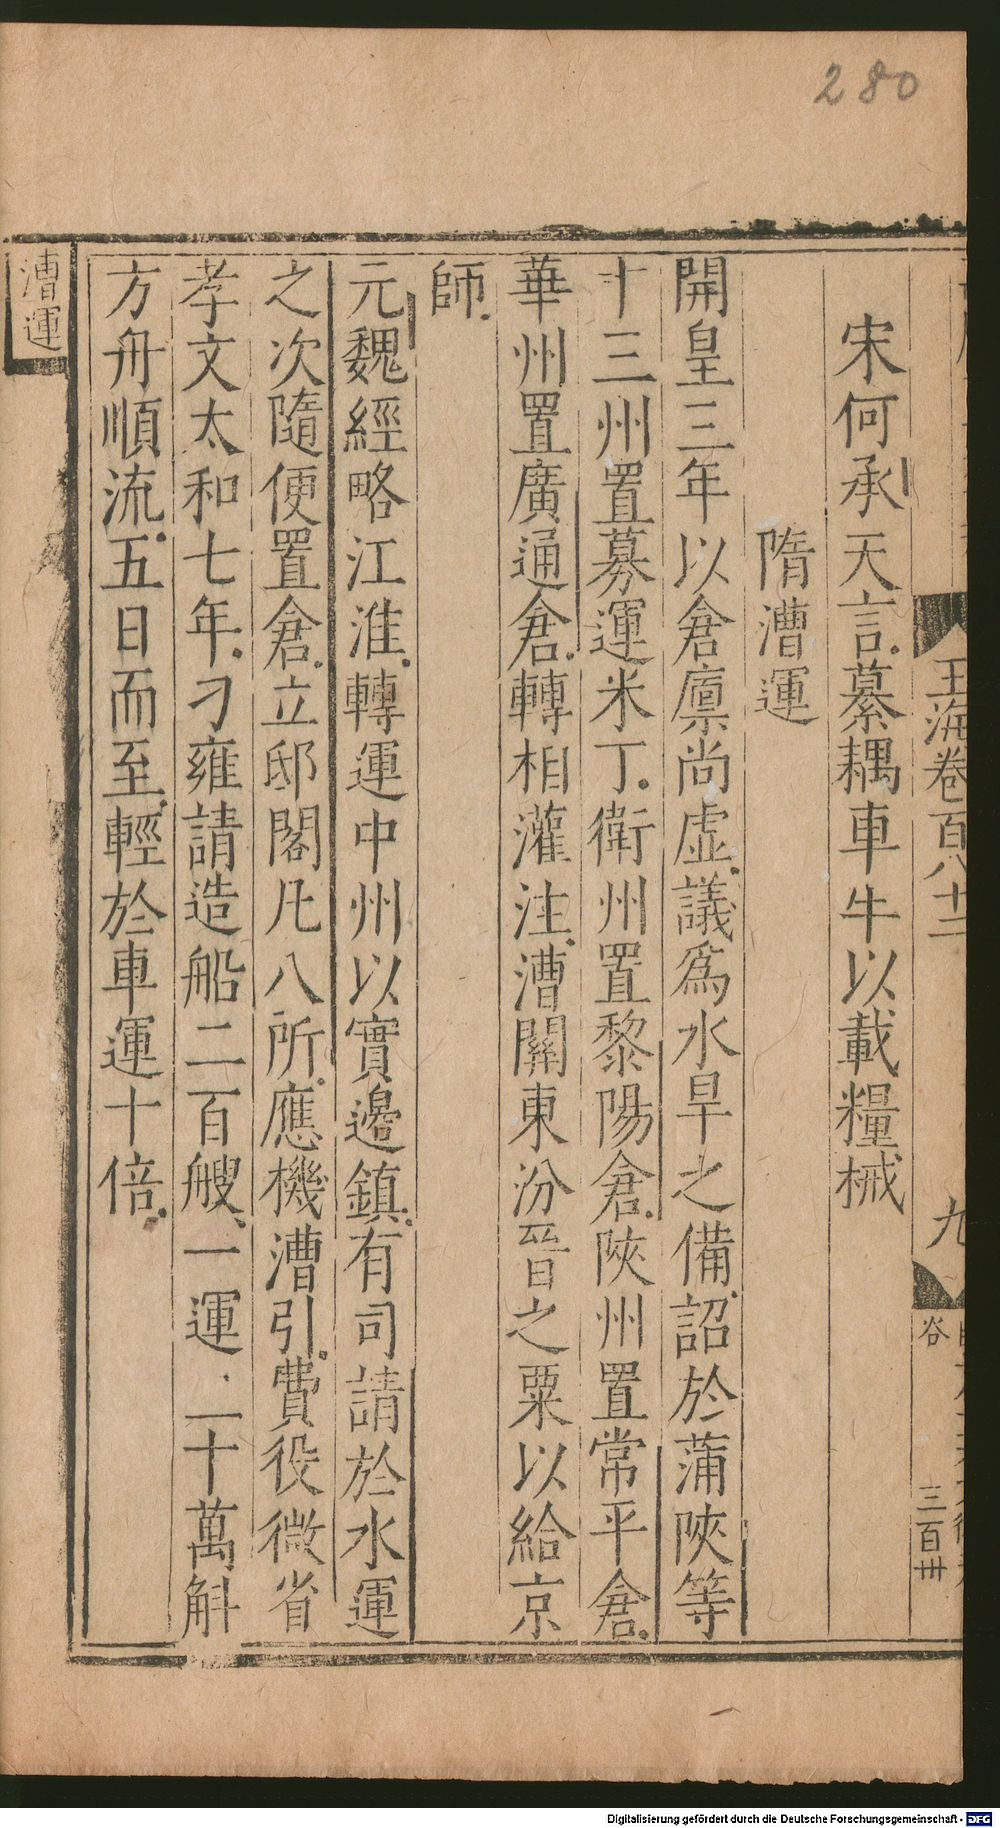 280
玉海卷百八十二
九
三百卅
宋何承天言纂耦車牛以載糧械
隋漕運
開皇三年以倉廪尚虛議爲水旱之備詔於蒲陜等
十三州置募運米丁衛州置黎陽倉陜州置常平倉
華州置廣通倉轉相灌注漕關東汾晉之粟以給京
師
元魏經略江淮轉運中州以實邊鎮有司請於水運
之次隨便置倉立邸閣凡八所應機漕引費役微省
孝文太和七年刁雍請造船二百艘一運二十萬斛
方舟順流五日而至輕於車運十倍
漕運
Digitalisierung gefördert durch die Deutsche Forschungsgemeinschaft - DFG